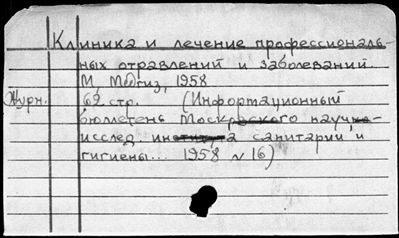 Клиника и лечение профессиональ-
ных отравлений и заболеваний
М Медгиз, 1958
Журн. 62 стр. (Информационный
бюллетень Московского научно-
исслед института санитарии и
гигиены... 1958 N 16)